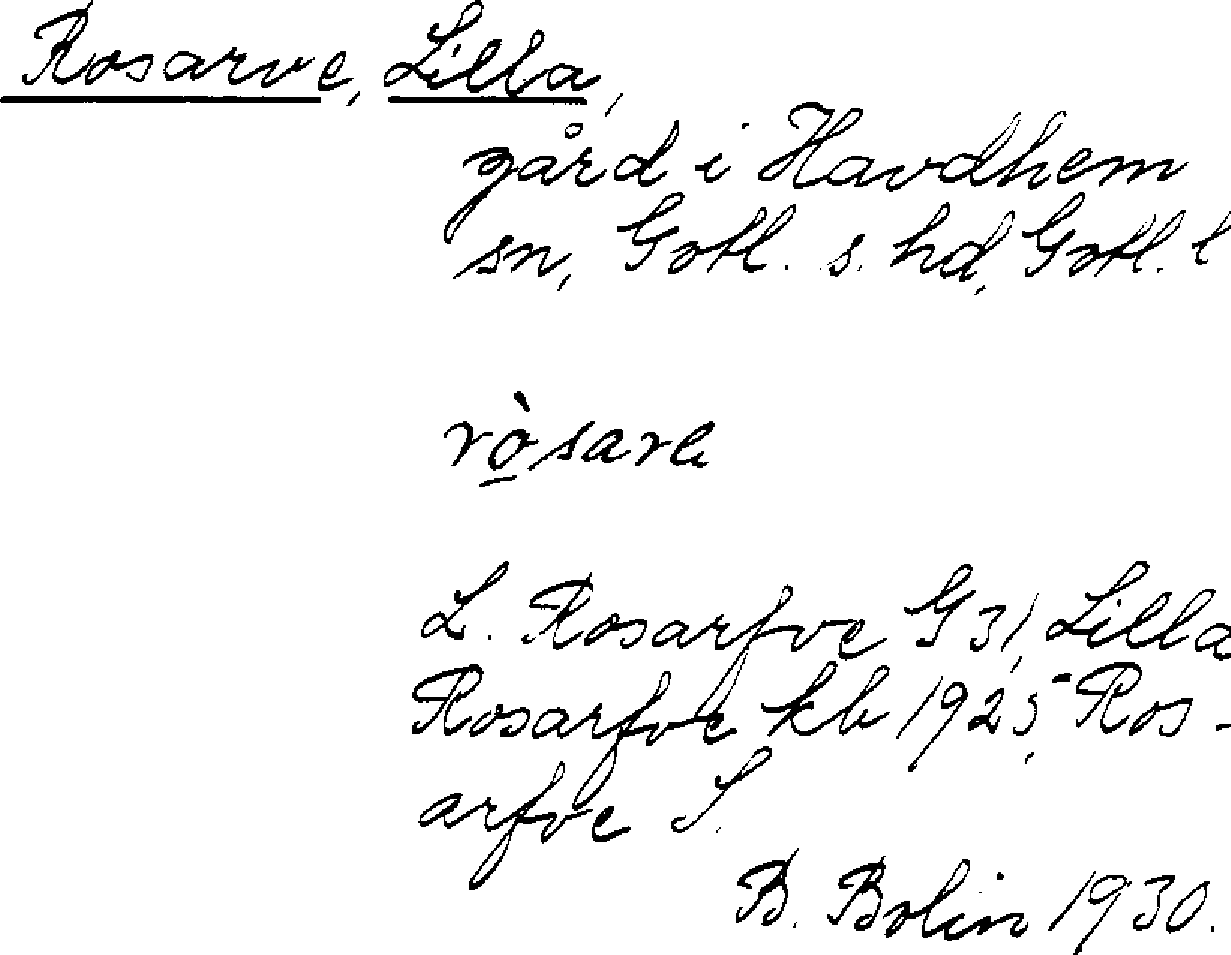 Rosarve, Lilla,
gård i Havdhem
sn, Gotl. s. hd, Gotl. l
rò̲sare
L. Rosarfve G 31, Lilla
Rosarfve kb 1925, Ros-
arfve S.
B. Bolin 1930.